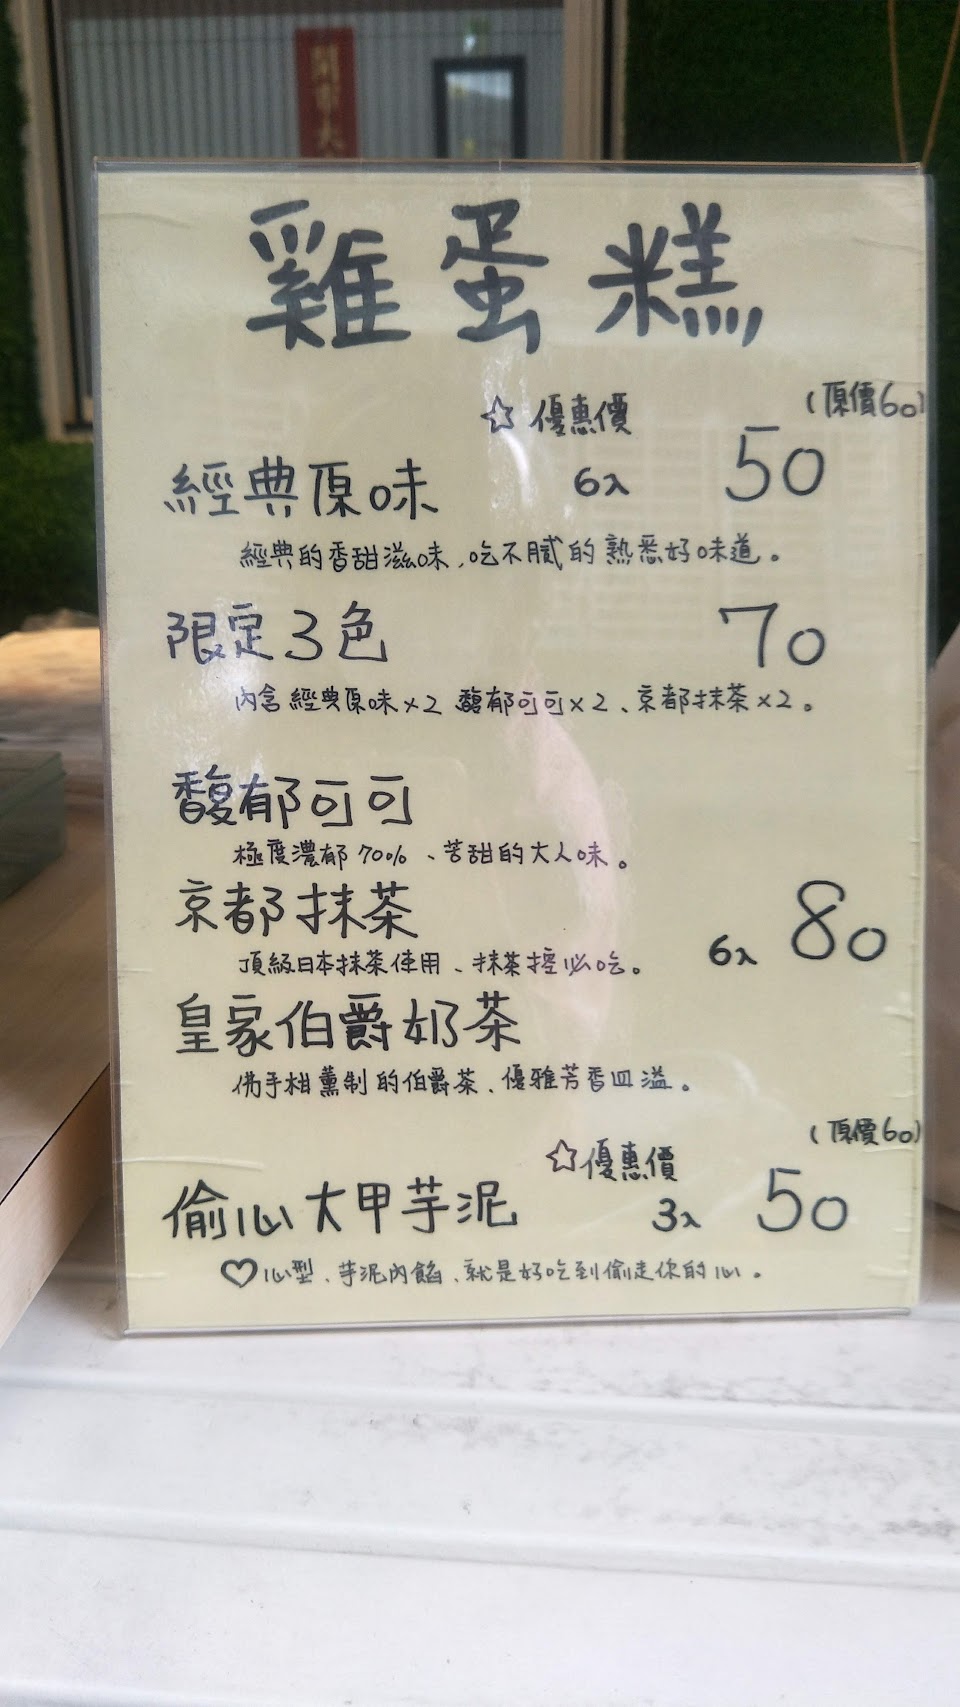 開市大
雞蛋糕
☆優惠價 (原價60)
經典原味 6入 50
經典的香甜滋味,吃不膩的熟悉好味道。
限定3色 70
內含經典原味x2 馥郁可可x2、京都抹茶x2。
馥郁可可
極度濃郁70%、苦甜的大人味。
京都抹茶
頂級日本抹茶使用、抹茶控必吃。 6入 80
皇家伯爵奶茶
佛手柑薰制的伯爵茶、優雅芳香四溢。
☆優惠價 (原價60)
偷心大甲芋泥 3入 50
♡心型、芋泥內餡、就是好吃到偷走你的心。